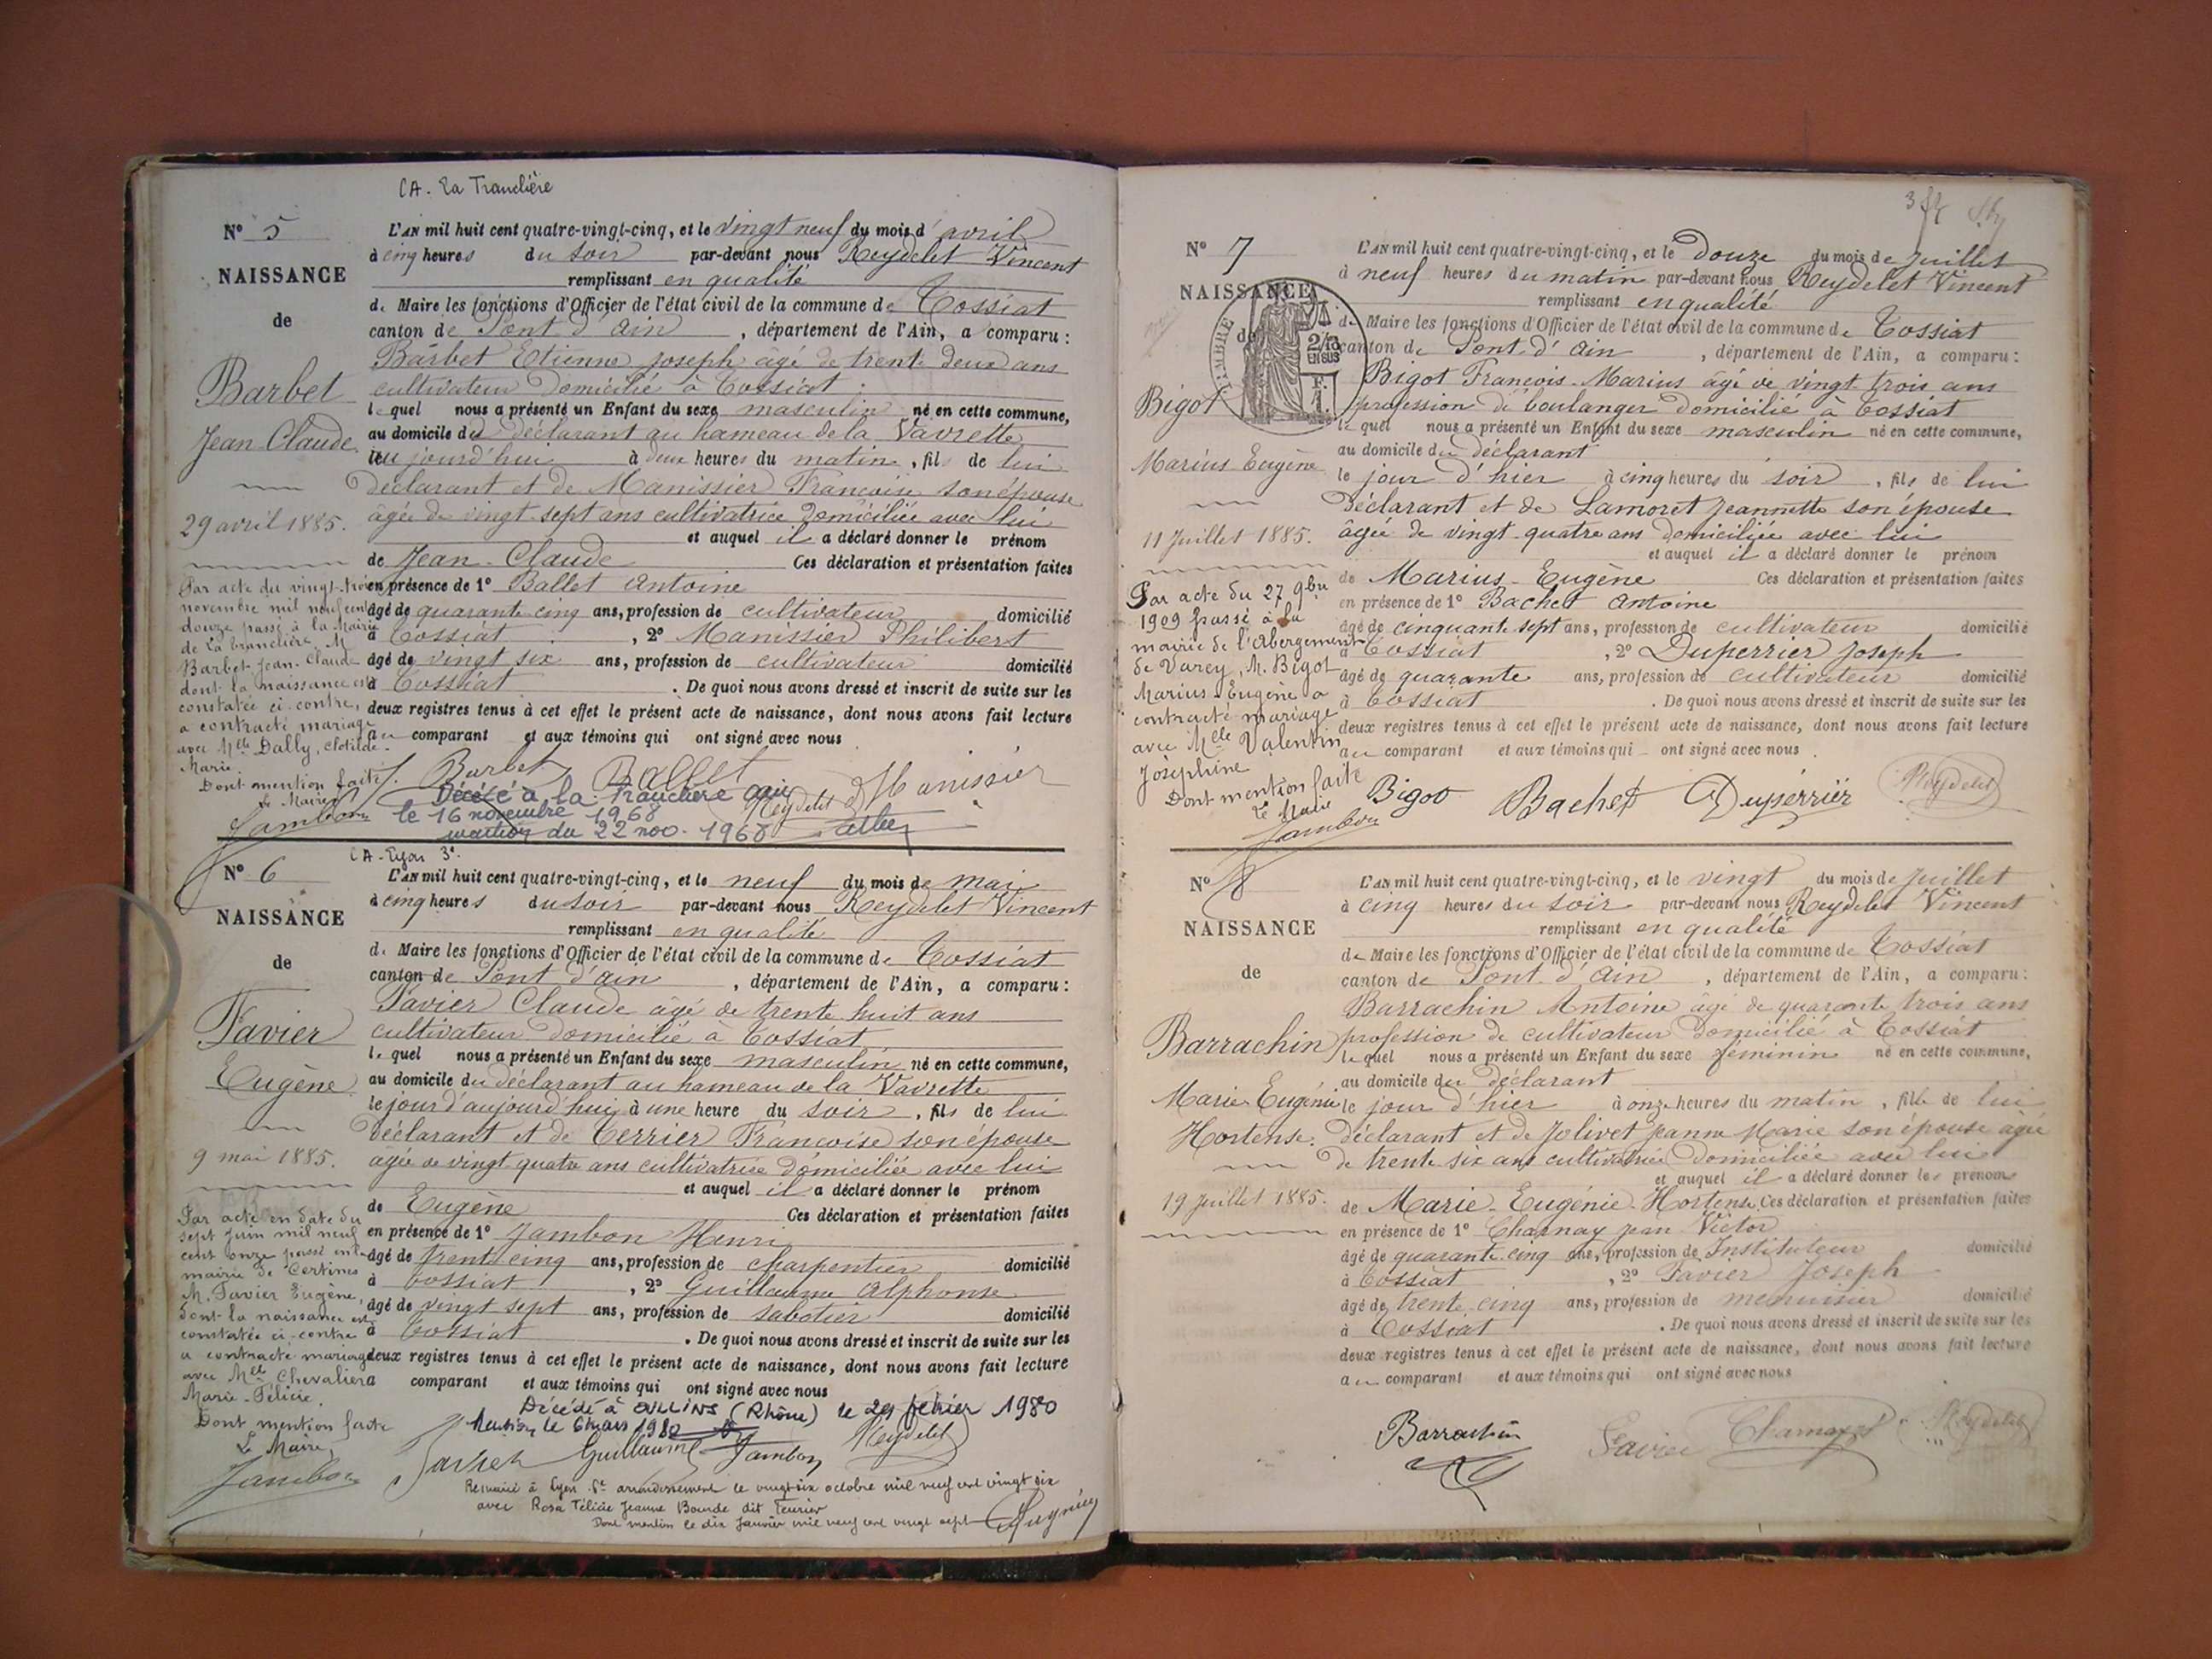 CA. La Tranclière
N° 5
NAISSANCE
de
Barbet
Jean-Claude
29 avril 1885.
L'AN mil huit cent quatre-vingt-cinq, et le vingt neuf du mois d'avril
à cinq heures du soir par-devant nous Reydelet Vincent
remplissant en qualité
de Maire les fonctions d'Officier de l'état civil de la commune de Tossiat
canton de Pont d'ain, département de l'Ain, a comparu :
Barbet Etienne Joseph âgé de trente deux ans
cultivateur domicilié à Tossiat
lequel nous a présenté un Enfant du sexe masculin né en cette commune,
au domicile du déclarant au hameau de la Vavrette
aujourd'hui à deux heures du matin, fils de lui
déclarant et de Manissier Françoise son épouse
âgée de vingt-sept ans cultivatrice domiciliée avec lui
et auquel il a déclaré donner le prénom
de Jean-Claude Ces déclaration et présentation faites
en présence de 1° Ballet Antoine
âgé de quarante cinq ans, profession de cultivateur domicilié
à Tossiat, 2° Manissier Philibert
âgé de vingt six ans, profession de cultivateur domicilié
à Tossiat. De quoi nous avons dressé et inscrit de suite sur les
deux registres tenus à cet effet le présent acte de naissance, dont nous avons fait lecture
au comparant et aux témoins qui ont signé avec nous
Par acte du vingt-trois
novembre mil neuf cent
douze passé à la Mairie
de La Tranclière, M
Barbet Jean-Claude
dont la naissance est
constatée ci-contre,
a contracté mariage
avec Melle Dally, Clotilde
Marie.
Dont mention faite
Le Maire
Jambon
Barbet Ballet Reydelet Manissier
Décédé à la Tranclière
le 16 novembre 1968
mention du 22 nov. 1968
CA - Lyon 3e
N° 6
NAISSANCE
de
Favier
Eugène
9 mai 1885.
L'AN mil huit cent quatre-vingt-cinq, et le neuf du mois de mai
à cinq heures du soir par-devant nous Reydelet Vincent
remplissant en qualité
de Maire les fonctions d'Officier de l'état civil de la commune de Tossiat
canton de Pont d'ain, département de l'Ain, a comparu :
Favier Claude âgé de trente huit ans
cultivateur domicilié à Tossiat
lequel nous a présenté un Enfant du sexe masculin né en cette commune,
au domicile du déclarant au hameau de la Vavrette
le jour d'aujourd'hui à une heure du soir, fils de lui
déclarant et de Terrier Françoise son épouse
âgée de vingt quatre ans cultivatrice domiciliée avec lui
et auquel il a déclaré donner le prénom
de Eugène Ces déclaration et présentation faites
en présence de 1° Jambon Henri
âgé de trente cinq ans, profession de charpentier domicilié
à Tossiat, 2° Guillaume Alphonse
âgé de vingt sept ans, profession de sabotier domicilié
à Tossiat. De quoi nous avons dressé et inscrit de suite sur les
deux registres tenus à cet effet le présent acte de naissance, dont nous avons fait lecture
au comparant et aux témoins qui ont signé avec nous
Par acte en date du
sept juin mil neuf
cent onze passé en la
mairie de Certines
M. Favier Eugène,
dont la naissance est
constatée ci-contre
a contracté mariage
avec Melle Chevalier
Marie-Félicie.
Dont mention faite
Le Maire,
Jambon
Décédé à OULLINS (Rhône) le 29 février 1980
Mention le 6 mars 1980
Favier Guillaume Jambon Reydelet
Remarié à Lyon arrondissement le vingt-six octobre mil neuf cent vingt six
avec Rosa Félicie Jeanne Bourde dit
Dont mention le dix janvier mil neuf cent vingt sept
3
N° 7
NAISSANCE
de
TIMBRE
2/10
EN SUS
F.
1.
Bigot
Marius Eugène
11 Juillet 1885.
L'AN mil huit cent quatre-vingt-cinq, et le Douze du mois de Juillet
à neuf heures du matin par-devant nous Reydelet Vincent
remplissant en qualité
de Maire les fonctions d'Officier de l'état civil de la commune de Tossiat
canton de Pont d'ain, département de l'Ain, a comparu :
Bigot François-Marius âgé de vingt trois ans
profession de boulanger domicilié à Tossiat
lequel nous a présenté un Enfant du sexe masculin né en cette commune,
au domicile du déclarant
le jour d'hier à cinq heures du soir, fils de lui
déclarant et de Lamoret Jeannette son épouse
âgée de vingt-quatre ans domiciliée avec lui
et auquel il a déclaré donner le prénom
de Marius-Eugène Ces déclaration et présentation faites
en présence de 1° Bachet Antoine
âgé de cinquante sept ans, profession de cultivateur domicilié
à Tossiat, 2° Duperrier Joseph
âgé de quarante ans, profession de cultivateur domicilié
à Tossiat. De quoi nous avons dressé et inscrit de suite sur les
deux registres tenus à cet effet le présent acte de naissance, dont nous avons fait lecture
au comparant et aux témoins qui ont signé avec nous.
Par acte du 27 9bre
1909 passé à la
mairie de l'Abergement
de Varey, M. Bigot
Marius-Eugène a
contracté mariage
avec Melle Valentin
Joséphine
Dont mention faite
Le Maire
Jambon
Bigot Bachet Duperrier Reydelet
N° 8
NAISSANCE
de
Barrachin
Marie Eugénie
Hortense.
19 Juillet 1885.
L'AN mil huit cent quatre-vingt-cinq, et le vingt du mois de Juillet
à cinq heures du soir par-devant nous Reydelet Vincent
remplissant en qualité
de Maire les fonctions d'Officier de l'état civil de la commune de Tossiat
canton de Pont d'ain, département de l'Ain, a comparu :
Barrachin Antoine âgé de quarante trois ans
profession de cultivateur domicilié à Tossiat
lequel nous a présenté un Enfant du sexe féminin né en cette commune,
au domicile du déclarant
le jour d'hier à onze heures du matin, fille de lui
déclarant et de Jolivet Jeanne Marie son épouse âgée
de trente six ans cultivatrice domiciliée avec lui
et auquel il a déclaré donner les prénoms
de Marie-Eugénie-Hortense. Ces déclaration et présentation faites
en présence de 1° Charnay Jean Victor
âgé de quarante cinq ans, profession de Instituteur domicilié
à Tossiat, 2° Favier Joseph
âgé de trente-cinq ans, profession de menuisier domicilié
à Tossiat. De quoi nous avons dressé et inscrit de suite sur les
deux registres tenus à cet effet le présent acte de naissance, dont nous avons fait lecture
au comparant et aux témoins qui ont signé avec nous
Barrachin Favier Charnay Reydelet